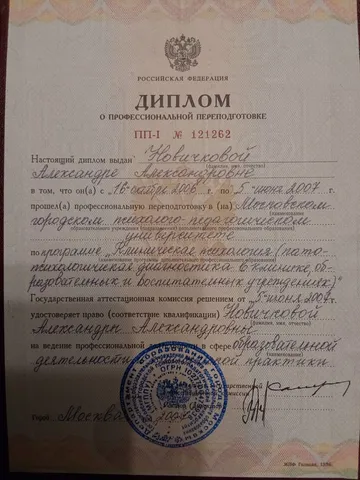 РОССИЙСКАЯ ФЕДЕРАЦИЯ
ДИПЛОМ
О ПРОФЕССИОНАЛЬНОЙ ПЕРЕПОДГОТОВКЕ
ПП-I № 121262
Настоящий диплом выдан Новичковой
(фамилия, имя, отчество)
Александре Александровне
в том, что он(а) с 16 октября 2006 г. по 5 июня 2007 г.
прошел(а) профессиональную переподготовку в (на) Московском
(наименование
городском психолого-педагогическом
университете
по программе „Клиническая психология (пато-
психологическая диагностика в клинике, об-
разовательных и воспитательных учреждениях)"
Государственная аттестационная комиссия решением от „5" июня 2007 г.
удостоверяет право (соответствие квалификации) Новичковой
(фамилия, имя, отчество)
Александры Александровны
на ведение профессиональной деятельности в сфере образовательной
(наименование)
деятельности практики
комиссии
Город Москва